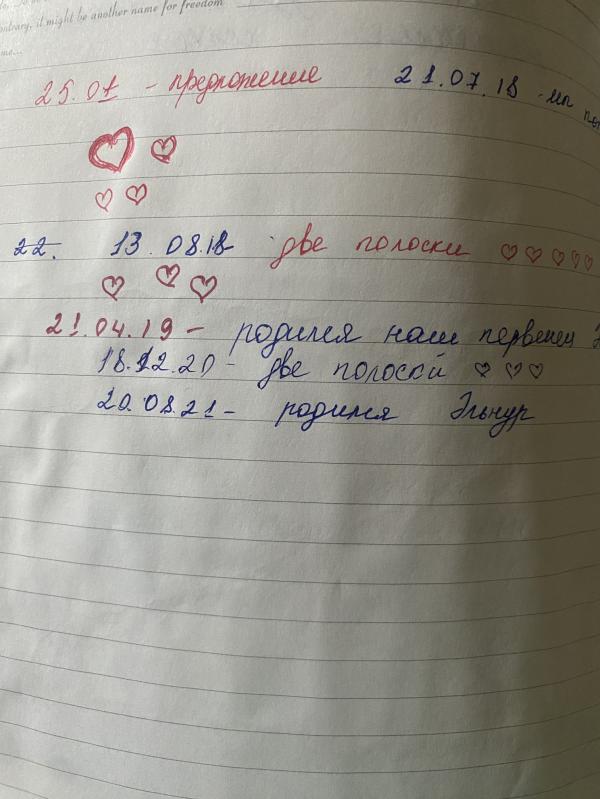 ontrary, it might be another name for freedom
me...
25.01 - предложение 21.07.18 - мы
22. 13.08.18 две полоски
21.04.19 - родился наш первенец
18.12.20 - две полоски
20.08.21 - родился Эльнур